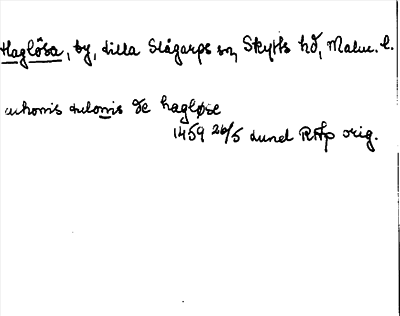 Haglösa, by, Lilla Slågarps sn, Skytts hd, Malm. l.
de hagløse
1459 26/5 Lund RAp orig.